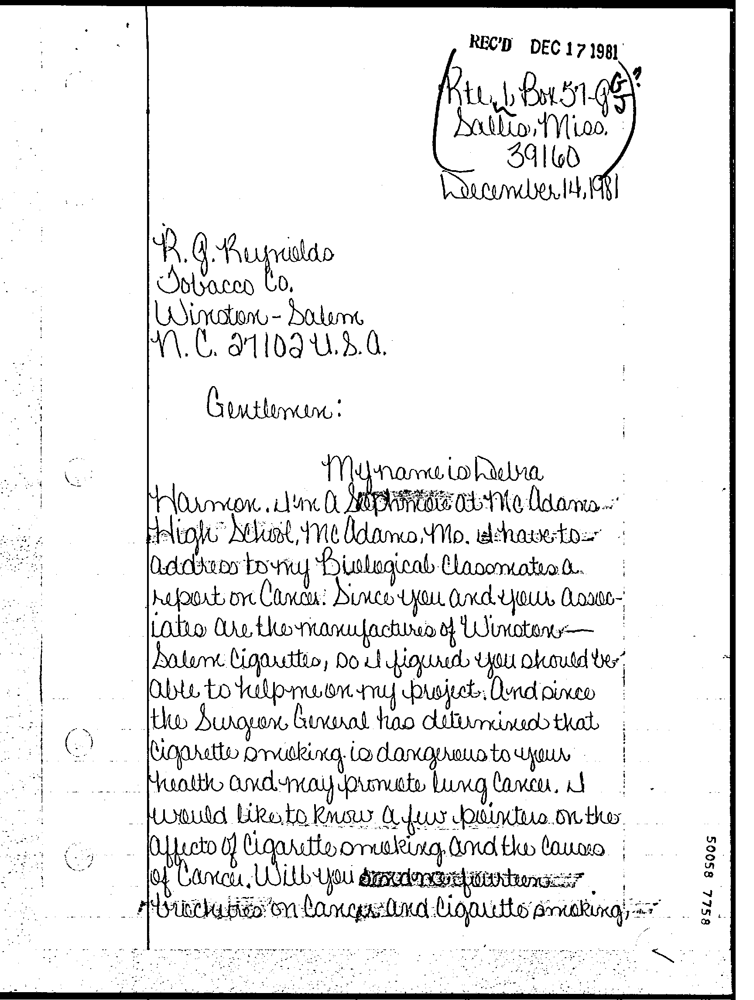 REC'D DEC 17 1981
Rte. 1, Box 57-G G/J ?
Sallis, Miss.
39160
December 14, 1981
R. J. Reynolds
Tobacco Co.
Winston-Salem
N.C. 27102 U.S.A.
Gentlemen:
My name is Debra
Harmon. I'm a Sophmore at McAdams
High School, McAdams, Ms. I have to
address to my Biological Classmates a
report on Cancer. Since you and your assoc-
iates are the manufactures of Winston-
Salem Cigarettes, so I figured you should be
able to help me on my project. And since
the Surgeon General has determined that
Cigarette smoking is dangerous to your
health and may promote lung Cancer. I
would like to know a few pointers on the
affects of Cigarette smoking and the Causes
of Cancer. Will you send me fourteen
brochures on Cancer and Cigarette smoking,
50058 7758